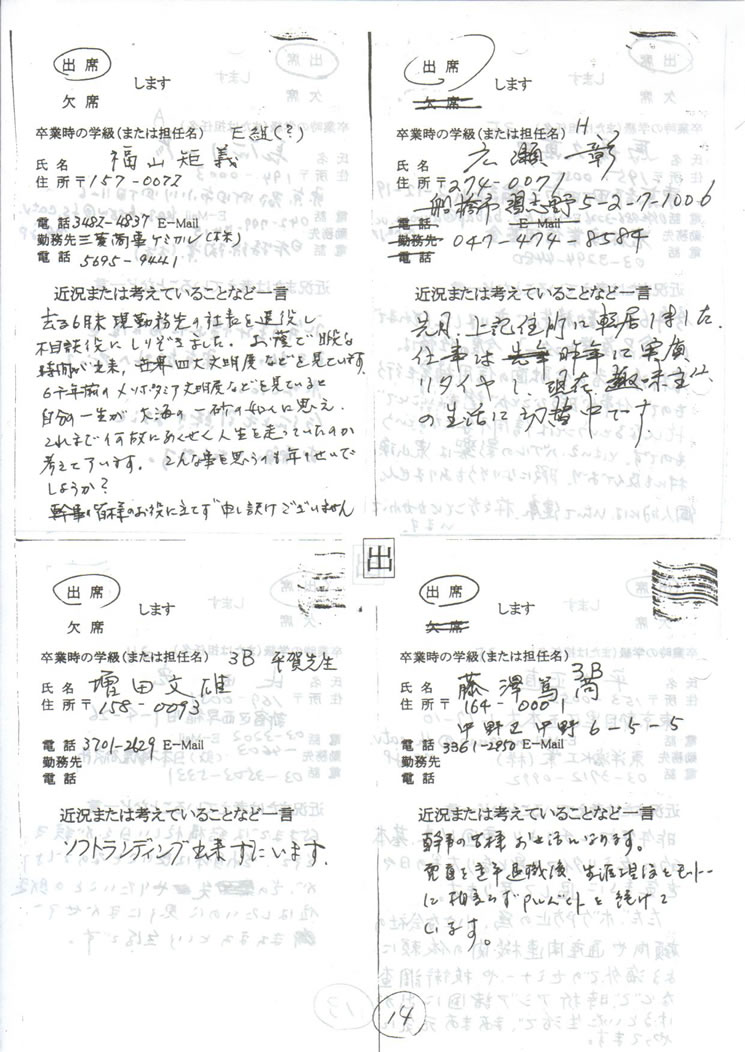 出席
します
欠席
卒業時の学級(または担任名) E組(?)
氏名 福山矩義
住所 〒157-0072
電話 3482-4837 E-Mail
勤務先 三菱商事ケミカル(株)
電話 5695-9441
近況または考えていることなど一言
去る6月末現勤務先の社長を退役し
相談役にしりぞきました。お蔭で暇な
時間が出来、世界四大文明展などを見ています。
6千年前のメソポタミア文明展などを見ていると
自分の一生が大海の一砂の如くに思え、
これまで何故にあくせく人生を走っていたのか
考えています。こんな事を思うのも年のせいで
しょうか?
幹事の皆様のお役に立てず申し訳けございません
出席
します
欠席
卒業時の学級(または担任名) H
氏名 広瀬一彰
住所 〒274-0071
船橋市習志野5-2-7-1006
電話 E-Mail
勤務先 047-474-8584
電話
近況または考えていることなど一言
先月、上記住所に転居しました。
仕事は 昨年に実質
リタイヤし、現在趣味主体
の生活に切替中です。
出
出席
します
欠席
卒業時の学級(または担任名) 3B 平賀先生
氏名 増田文雄
住所 〒158-0093
電話 3701-2629 E-Mail
勤務先
電話
近況または考えていることなど一言
ソフトランディング出来ずにいます.
出席
します
欠席
卒業時の学級(または担任名) 3B
氏名 藤澤篤尚
住所 〒164-0001
中野区中野6-5-5
電話 3361-2950 E-Mail
勤務先
電話
近況または考えていることなど一言
幹事の皆様お世話になります。
定年退職後、生涯現役をモットー
に相変らずアルバイトを続けて
います。
14